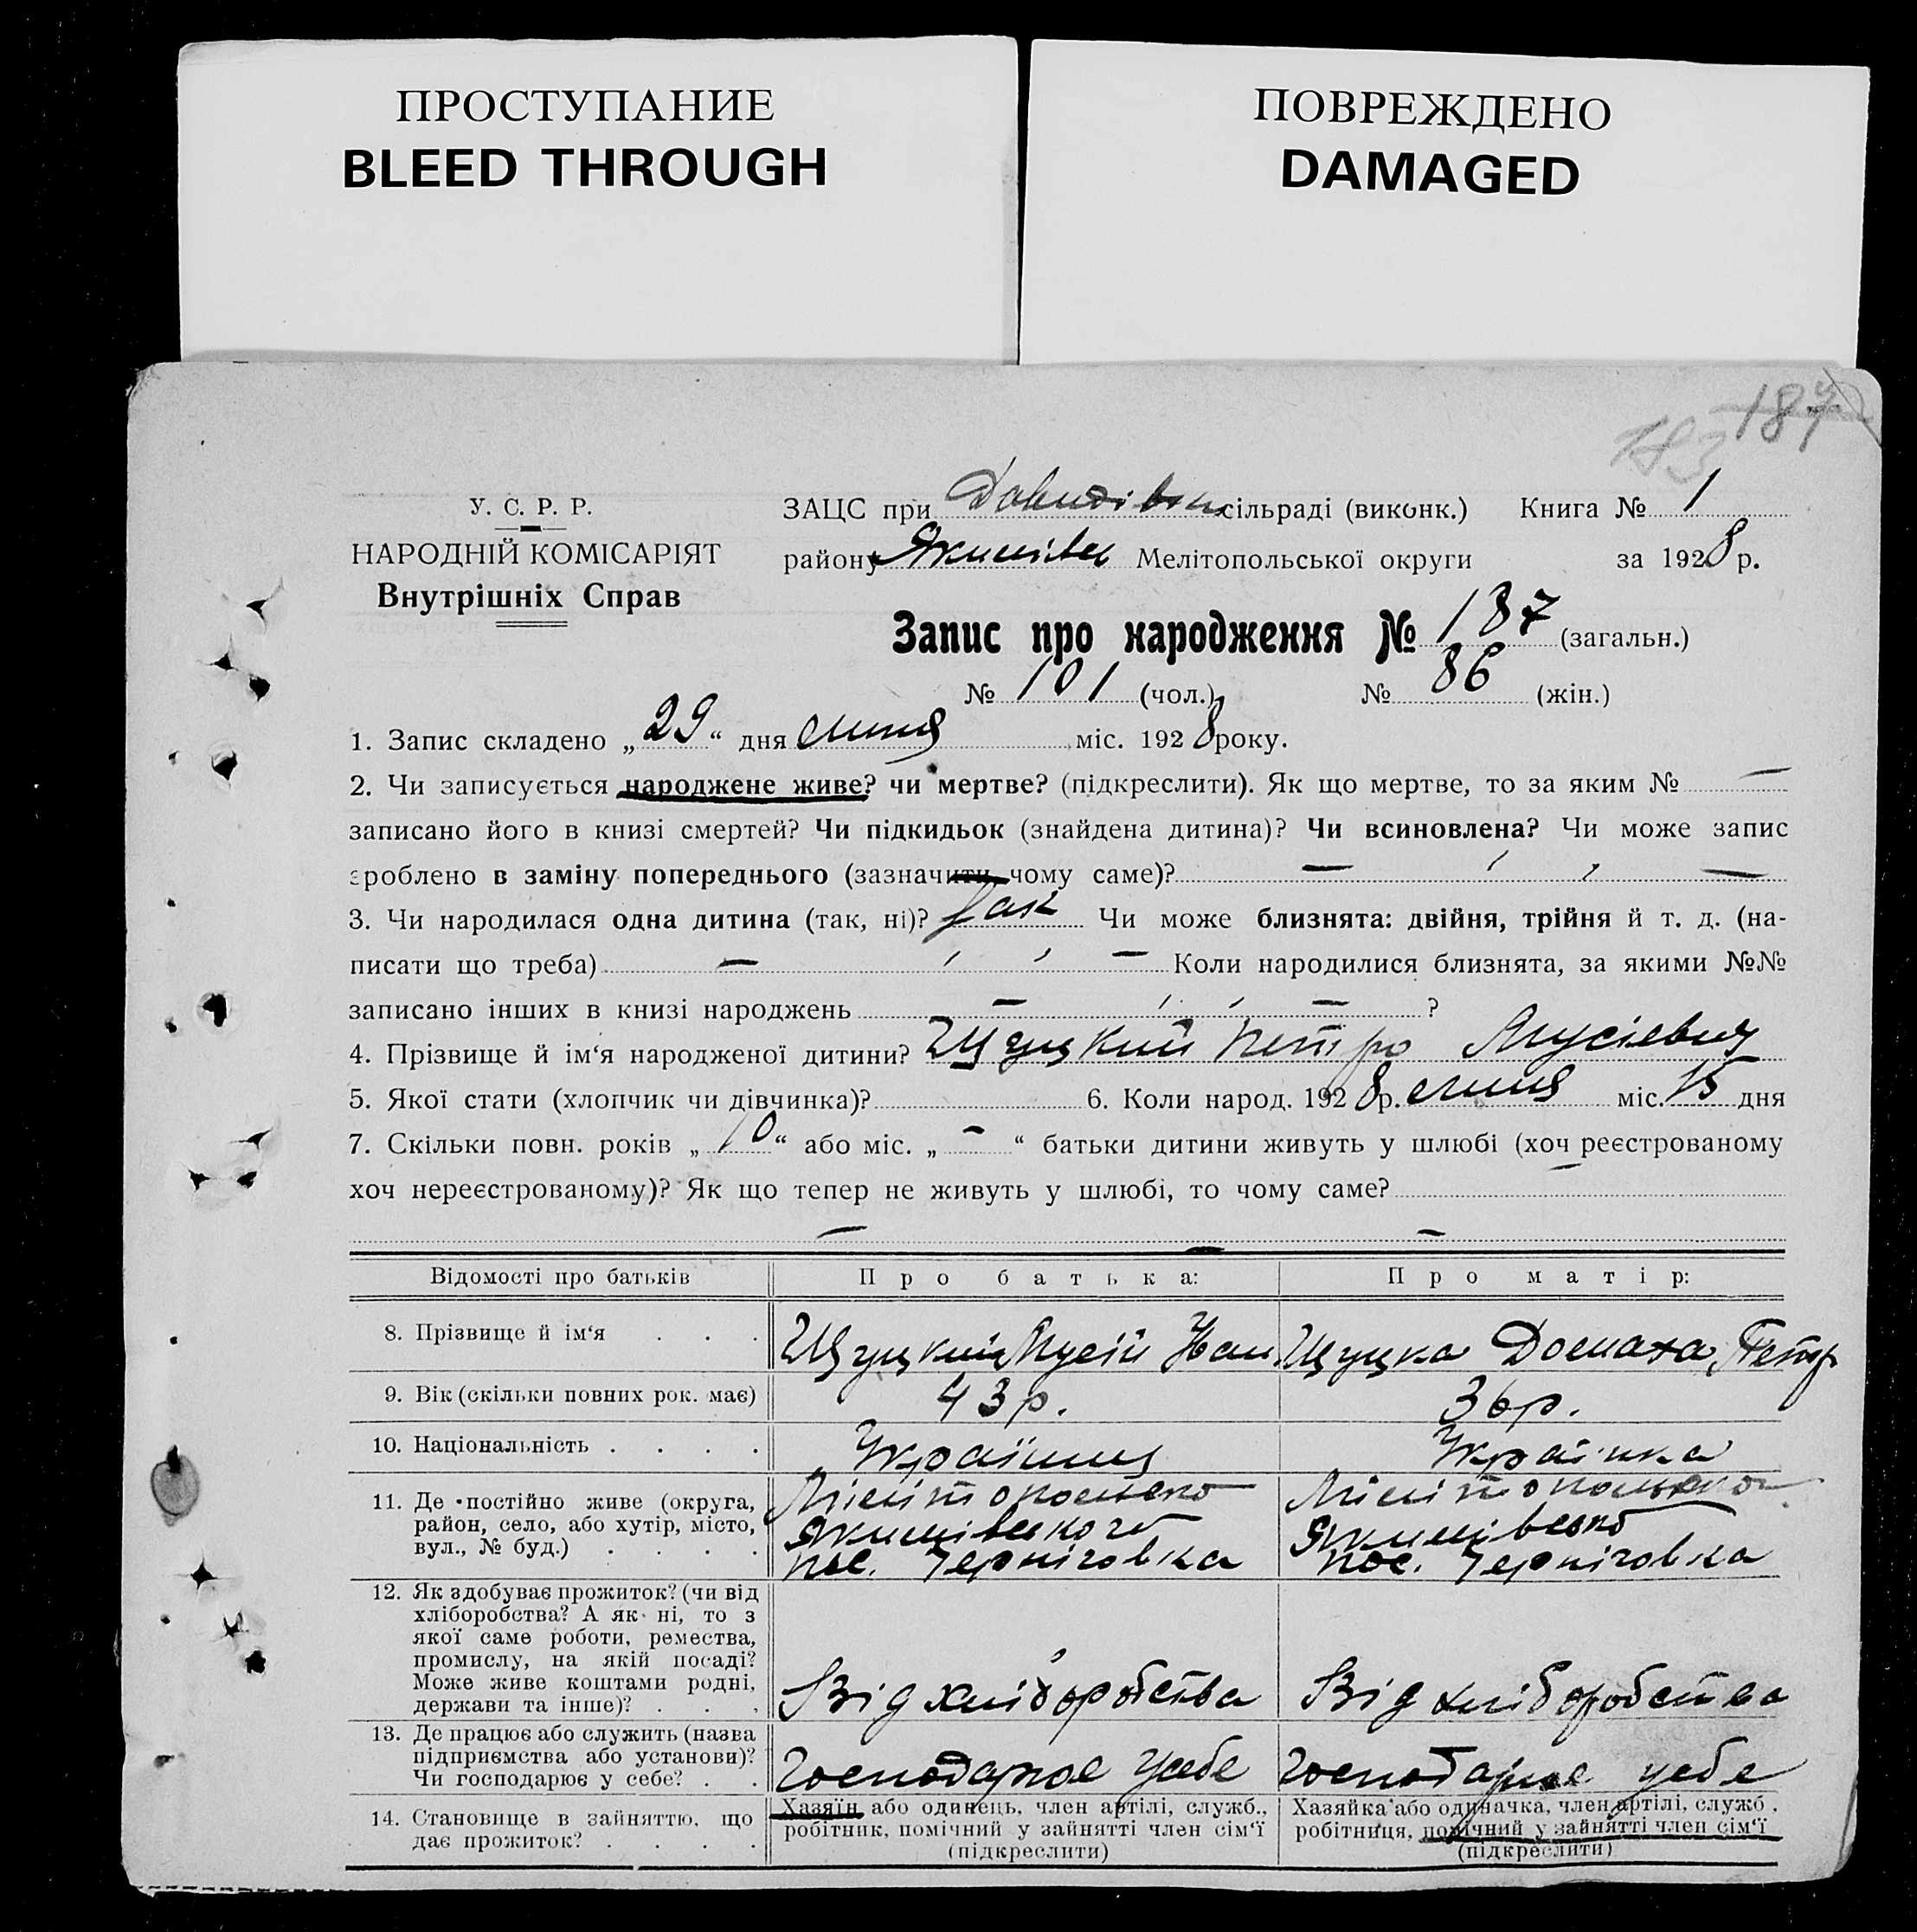 ПРОСТУПАНИЕ
BLEED THROUGH
ПОВРЕЖДЕНО
DAMAGED
187
183
У. С. Р. Р.
НАРОДНІЙ КОМІСАРІЯТ
Внутрішніх Справ
ЗАЦС при Давидівськ сільраді (виконк.) Книга № 1
району Якимівськ Мелітопольської округи за 1928 р.
Запис про народження № 187 (загальн.)
№ 101 (чол.) № 86 (жін.)
1. Запис складено „29“ дня липня міс. 1928 року.
2. Чи записується народжене живе? чи мертве? (підкреслити). Як що мертве, то за яким № —
записано його в книзі смертей? Чи підкидьок (знайдена дитина)? Чи всиновлена? Чи може запис
зроблено в заміну попереднього (зазначити чому саме)? — —
3. Чи народилася одна дитина (так, ні)? так Чи може близнята: двійня, трійня й т. д. (на-
писати що треба) — — Коли народилися близнята, за якими №№
записано інших в книзі народжень — — ?
4. Прізвище й ім‘я народженої дитини? Щуцкий Петро Мусієвич
5. Якої стати (хлопчик чи дівчинка)? 6. Коли народ. 1928 р. липня міс. 15 дня
7. Скільки повн. років „10“ або міс. „—“ батьки дитини живуть у шлюбі (хоч реєстрованому
хоч нереєстрованому)? Як що тепер не живуть у шлюбі, то чому саме? —
— —
Відомості про батьків Про батька: Про матір:
8. Прізвище й ім‘я . . . Щуцкий Мусій Иван. Щуцка Домаха Петр
9. Вік (скільки повних рок. має) 43 р. 36 р.
10. Національність . . . . Українец Українка
11. Де постійно живе (округа, район, село, або хутір, місто, вул., № буд.) . . . .
Мелітопольсько
Якимівського
пос. Черніговка
Мелітопольсько
Якимівсько
пос. Черніговка
12. Як здобуває прожиток? (чи від
хліборобства? А як ні, то з
якої саме роботи, ремества,
промислу, на якій посаді?
Може живе коштами родні,
держави та інше)? . . .
Від хліборобства Від хліборобства
13. Де працює або служить (назва
підприємства або установи)?
Чи господарює у себе? . .
Господарює у себе Господарює у себе
14. Становище в зайняттю, що
дає прожиток? . . . .
Хазяїн або одинець, член артілі, служб.,
робітник, помічний у зайнятті член сім‘ї
(підкреслити)
Хазяйка або одиначка, член артілі, служб.
робітниця, помічний у зайнятті член сім‘ї
(підкреслити)